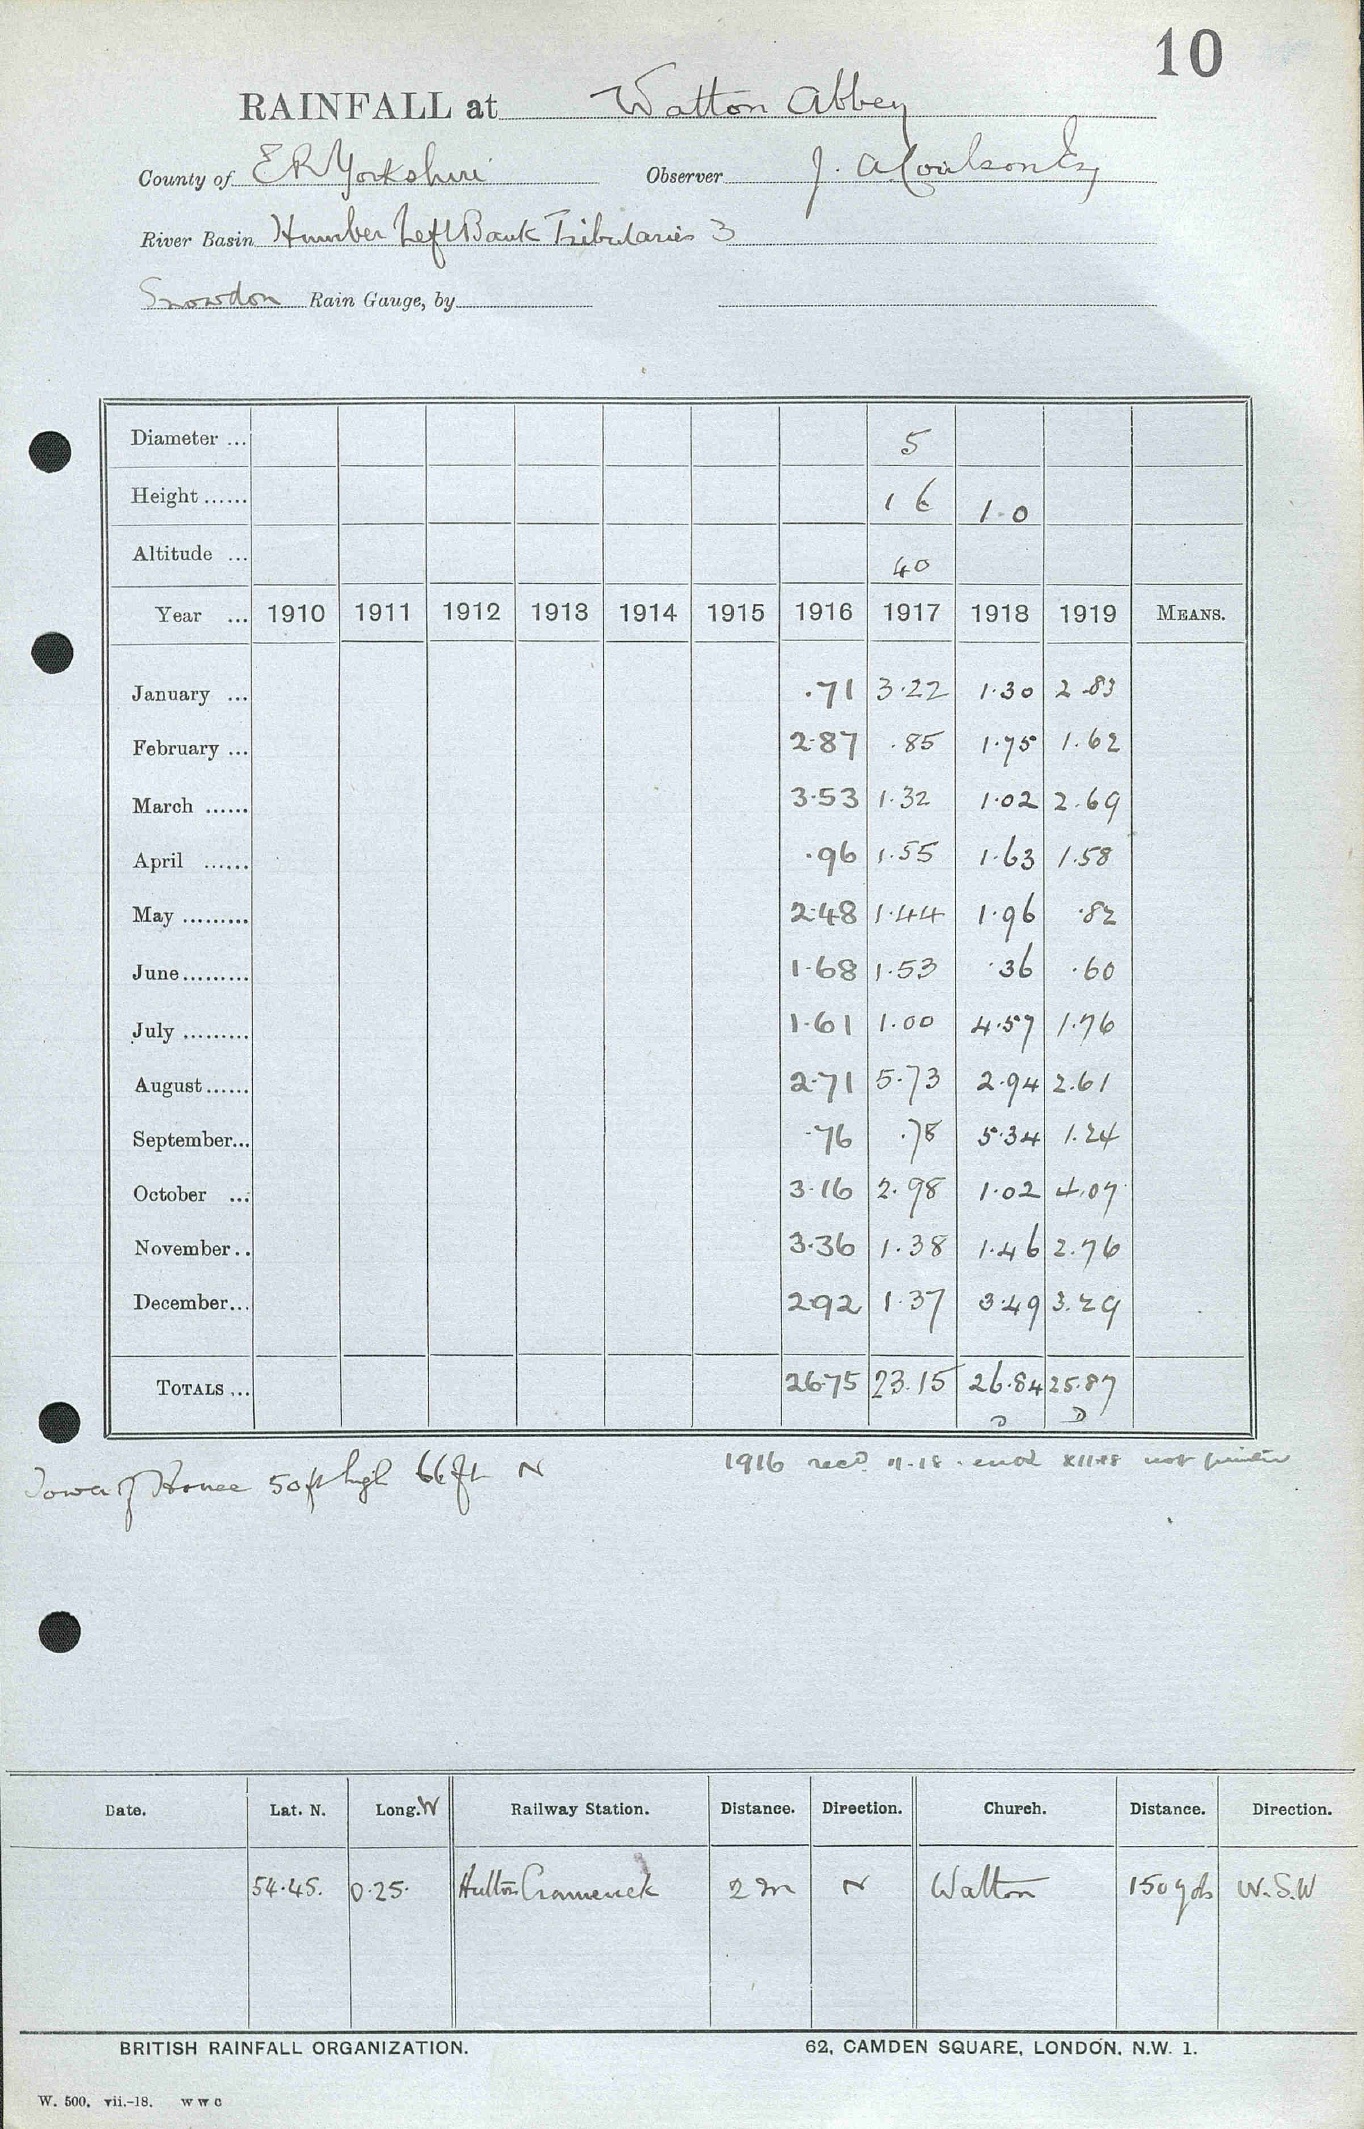 10
RAINFALL at Watton Abbey
County of E R Yorkshire Observer J. A Coulson Esq
River Basin Humber Left Bank Tributaries 3
Snowdon Rain Gauge, by
Diameter ... 5
Height ...... 1 6 1.0
Altitude ... 40
Year ... 1910 1911 1912 1913 1914 1915 1916 1917 1918 1919 MEANS.
January ... .71 3.22 1.30 2.83
February ... 2.87 .85 1.75 1.62
March ...... 3.53 1.32 1.02 2.69
April ...... .96 1.55 1.63 1.58
May ......... 2.48 1.44 1.96 .82
June ......... 1.68 1.53 .36 .60
July ......... 1.61 1.00 4.57 1.76
August ...... 2.71 5.73 2.94 2.61
September... .76 .78 5.34 1.24
October ... 3.16 2.98 1.02 4.07
November .. 3.36 1.38 1.46 2.76
December... 2.92 1.37 3.49 3.29
TOTALS ... 26.75 23.15 26.84 25.87
D D
Tower of House 50ft high 66ft N
1916 recd. 11.18. not printed
Date. Lat. N. Long. W Railway Station. Distance. Direction. Church. Distance. Direction.
54.45. 0.25. Hutton 2 m N Watton 150 yds W.S.W
BRITISH RAINFALL ORGANIZATION. 62, CAMDEN SQUARE, LONDON, N.W. 1.
W. 500. vii.-18. W W C